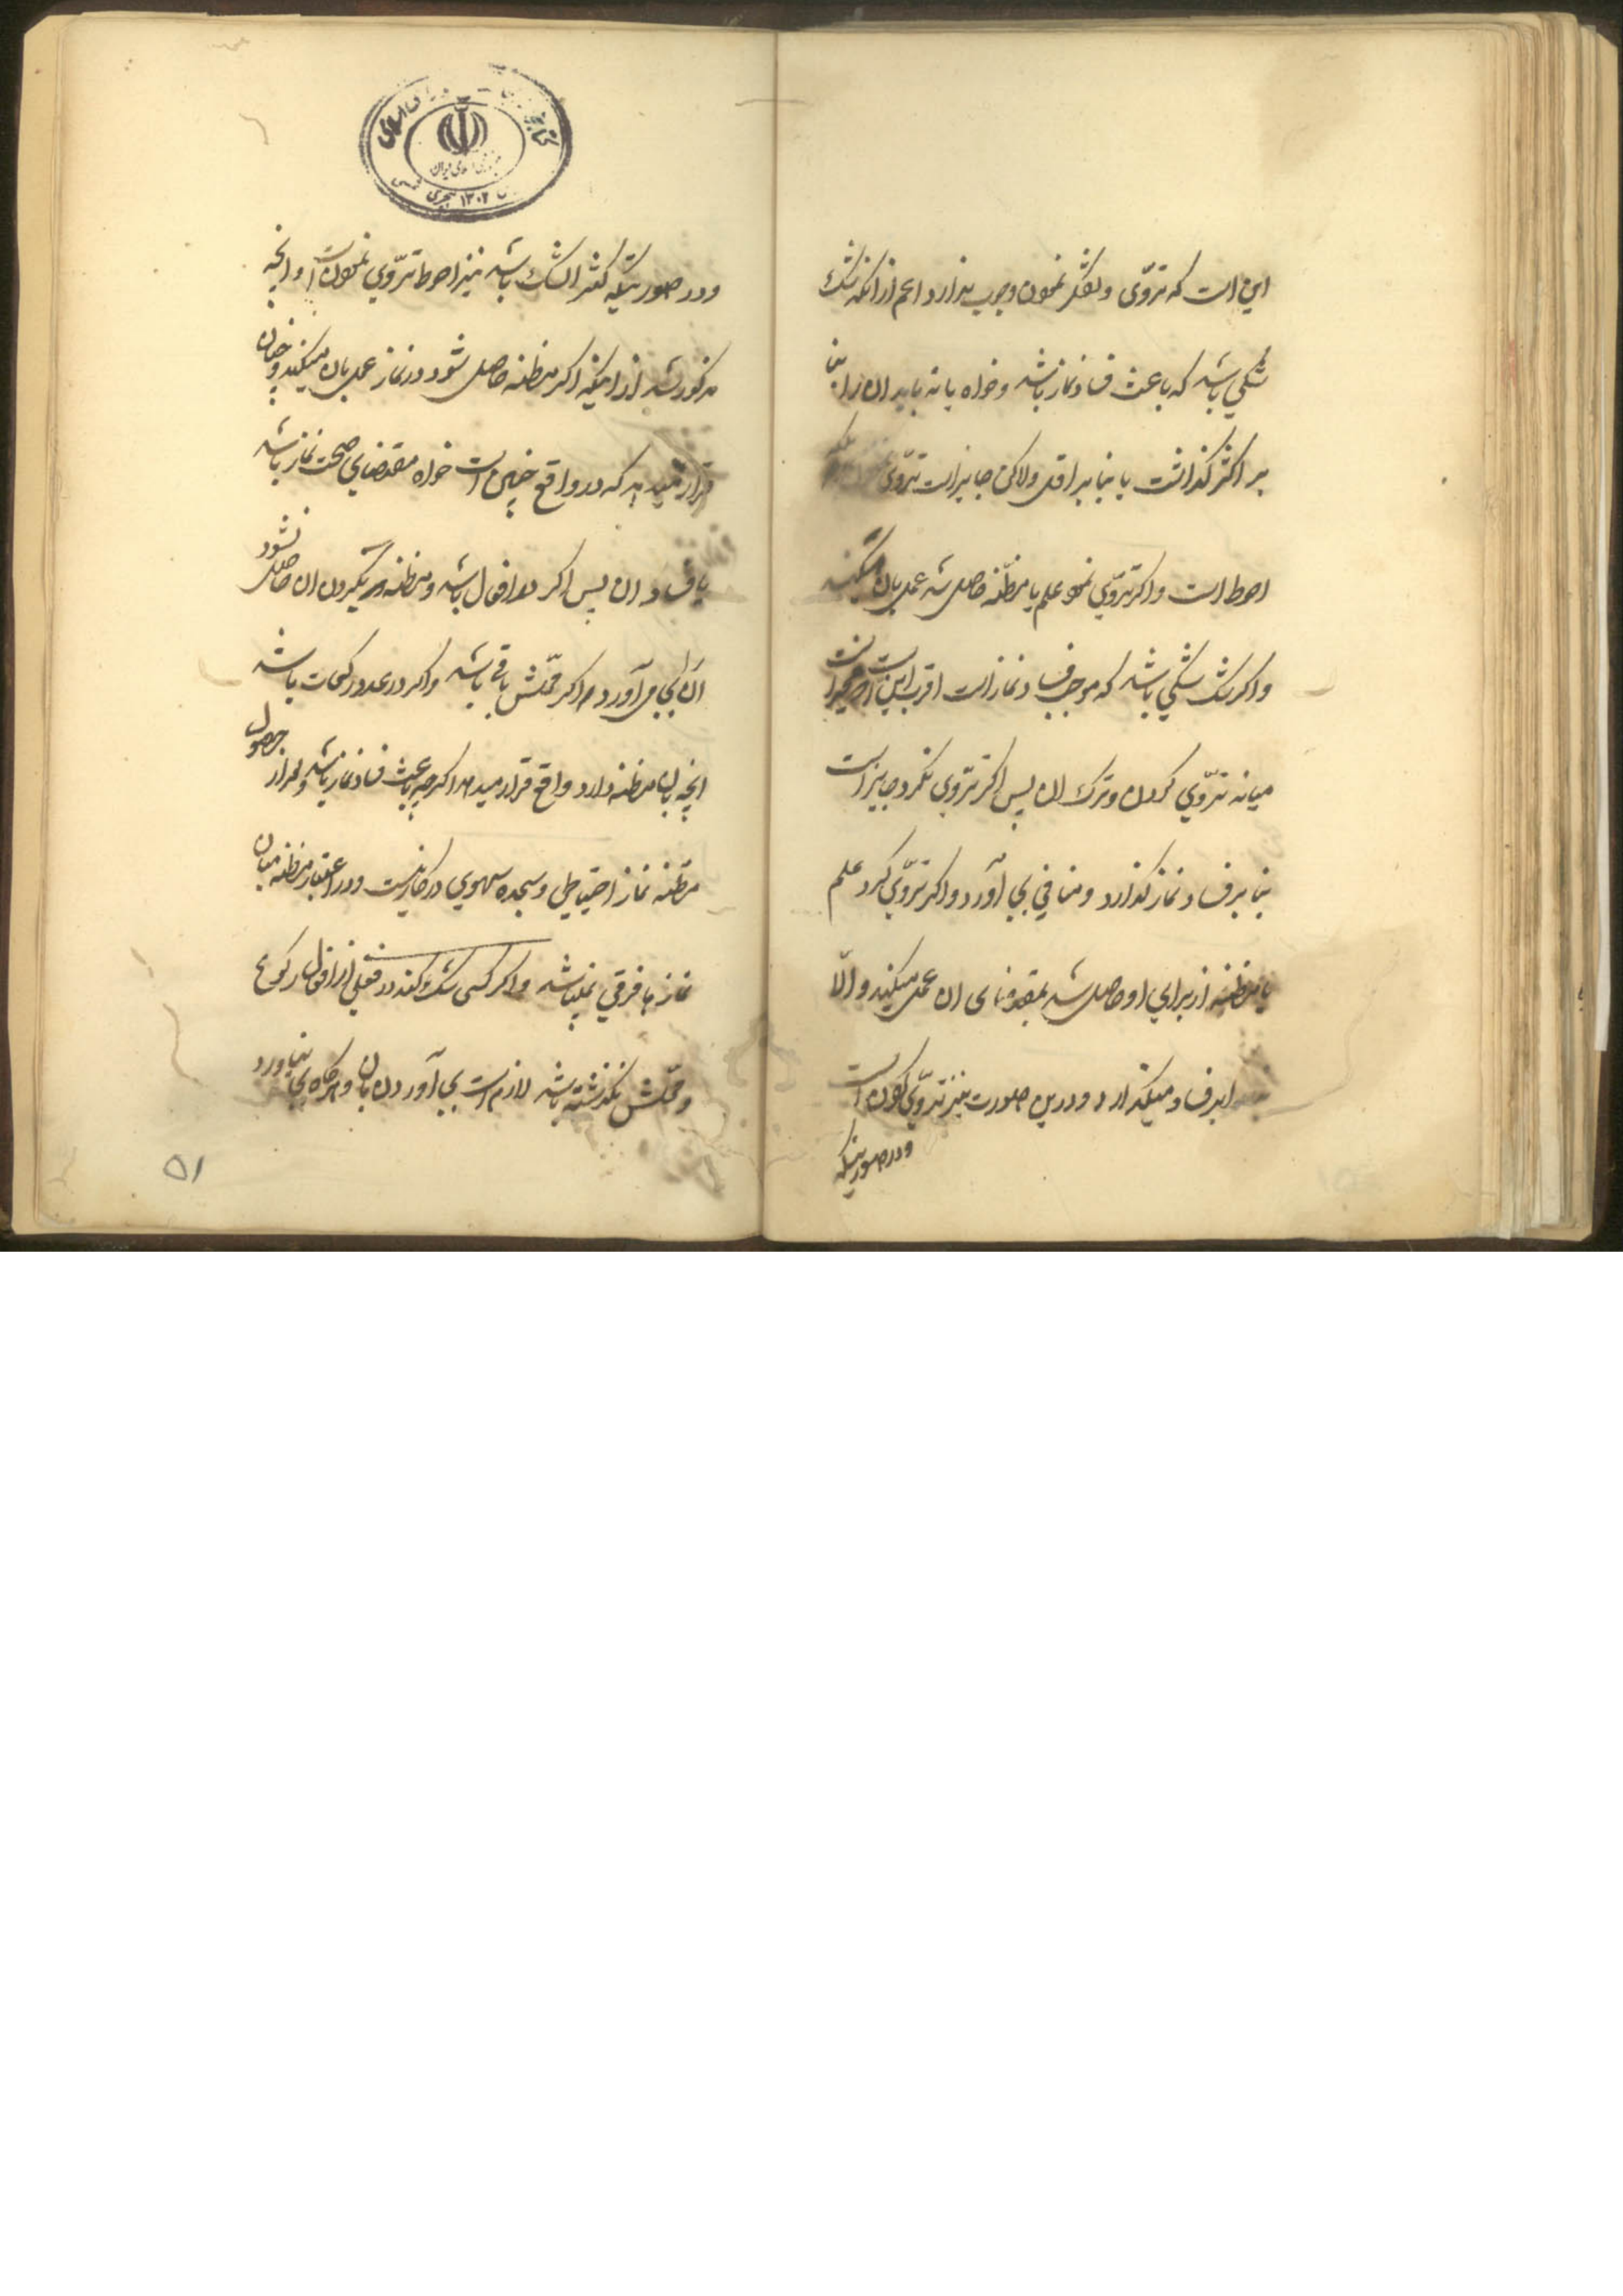 این است که تروّی و تفکر نمودن وجوب ندارد اعم از انکه شک
شکی باشد که باعث فساد نماز باشد و خواه یا نه باید ان را بنا
بر اکثر کذاشت یا بنا بر اقل ولاکن جایز است تروّی بلکه
احوط است و اکر تروّی نمود علم یا مظنّه حاصل شد عمل بان میکند
و اکر شک شکی باشد که موجب فساد نماز است اقرب این است که مخیر است
میانه تروّی کردن و ترک ان پس اکر تروّی نکرد جایز است
بنا بر فساد نماز کذارد و منافی بجی آورد و اکر تروّی کرد علم
یا مظنه از برای او حاصل شد بمقتضای ان عمل میکند و الّا
بر فساد میکذارد و درین صورت نیز تروّی نمودن است
و در صورتیکه
و در صورتیکه کثیر الشک باشد نیز احوط تروّی نمودن است و انچه
مذکور شد از اینکه اکر مظنه حاصل شود در نماز عمل بان میکند و چنان
قرار میدهد که در واقع چنین است خواه مقتضای صحت نماز باشد
یا فساد ان پس اکر در افعال باشد و مظنه در نکردن ان حاصل شود
ان را بجی می آورد اکر محلّش باقی باشد و اکر در عدد رکعات باشد
انچه بان مظنه دارد واقع قرار میدهد اکر چه باعث فساد نماز باشد و بعد از حصول
مظنه نماز احتیاطی و سجده سهوی در کار نیست و در اعتبار مظنه میان
نماز ها فرقی نمیباشد و اکر کسی شک کند در فعلی از افعال رکوع
و محلّش نکذشته باشد لازم است بجی آوردن بان و هرکاه بجی نیاورد
۵۱
۱۳۰۲ هجری